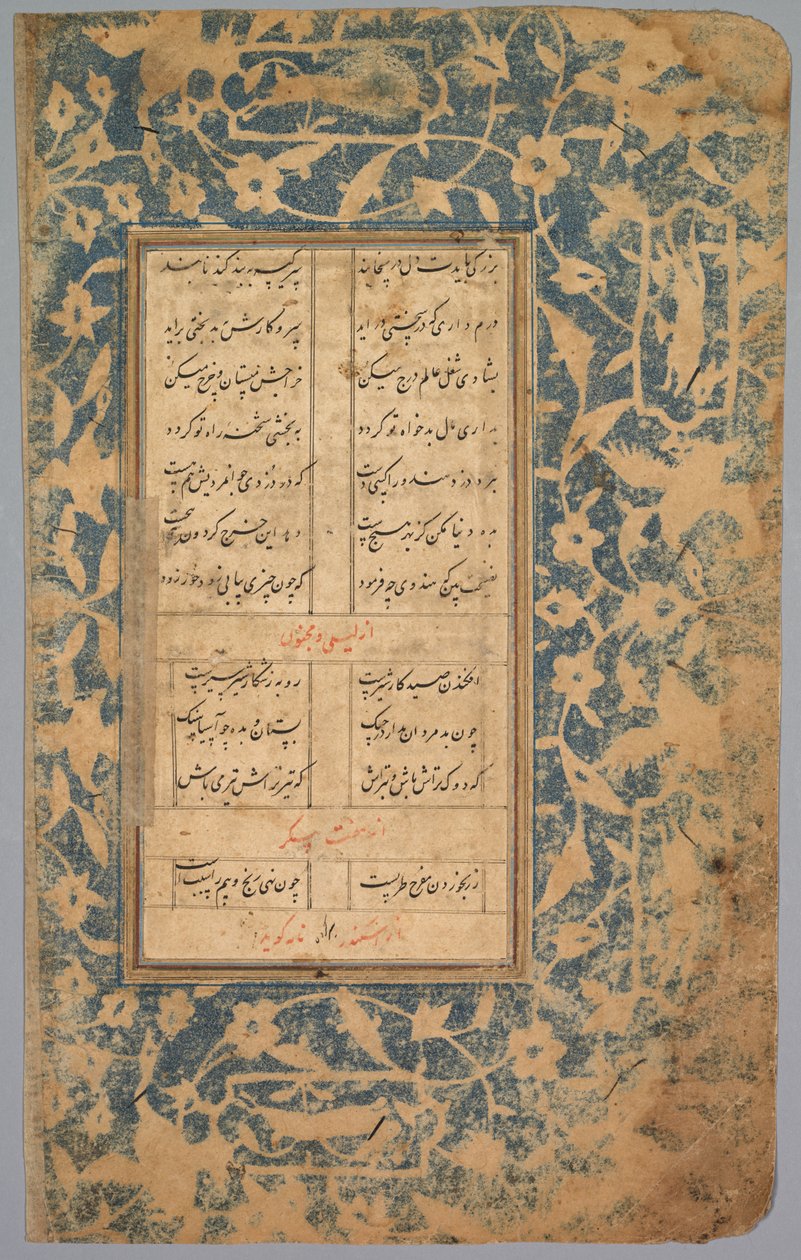 بزرگی بایدت دل در سخا بند سر کیسه به بند گندنا بند
درم داری که در سختی در اید سر و کارش بد بختی براید
بشادی شغل عالم درج میکن خراجش میستان و خرج میکن
بداری مال بدخواه تو گردد به بخشی شحنه راه تو گردد
برد دزد هندو را کسی دست که در دزدی جوانمردیش هم هست
بده دنیا مکن کز بهر هیچت دهد این چرخ گردون
نصیحت بین که هندوی چه فرمود که چون چیزی بیابی زود خور زود
از لیلی و مجنون
افکندن صید کار شیرست روبه ز شکار شیر سیرست
چون مردان بدار در چنگ بستان و بده چو آسیا سنگ
که دوک تراش باش و که تیر تراش تیر می باش
از هفت پیکر
زر بخوردن مفرح طربست چون نهی رنج و بیم را سببست
از اسکندر نامه گوید